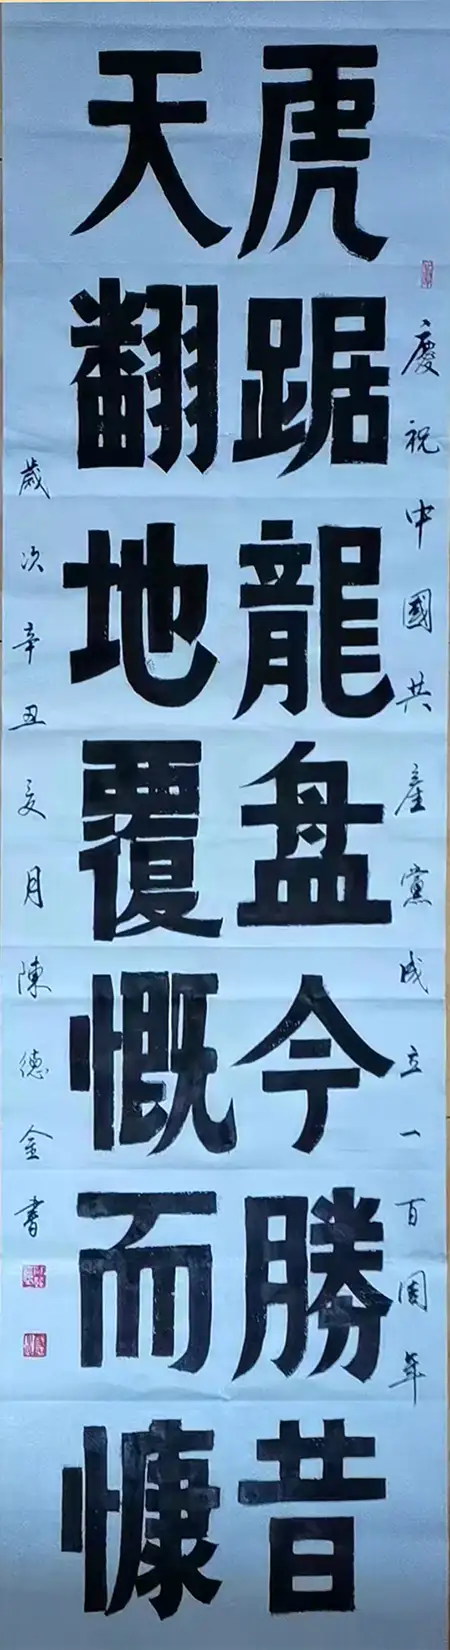 慶祝中國共產黨成立一百周年
虎踞龍盘今勝昔
天翻地覆慨而慷
歲次辛丑亥月陳德金書